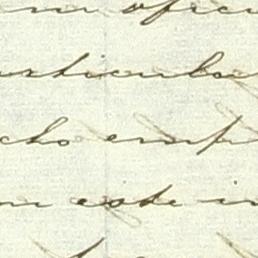 un ofici
articular
cho emp
en este in